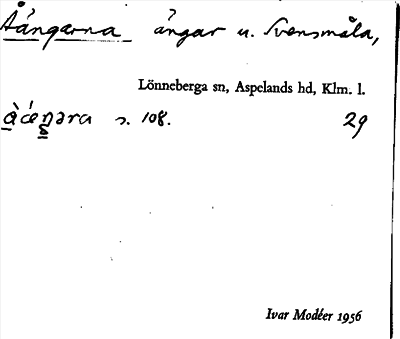 Åängarna ängar u. Svensmåla,
Lönneberga sn, Aspelands hd, Klm. l.
s. 108. 29
Ivar Modéer 1956